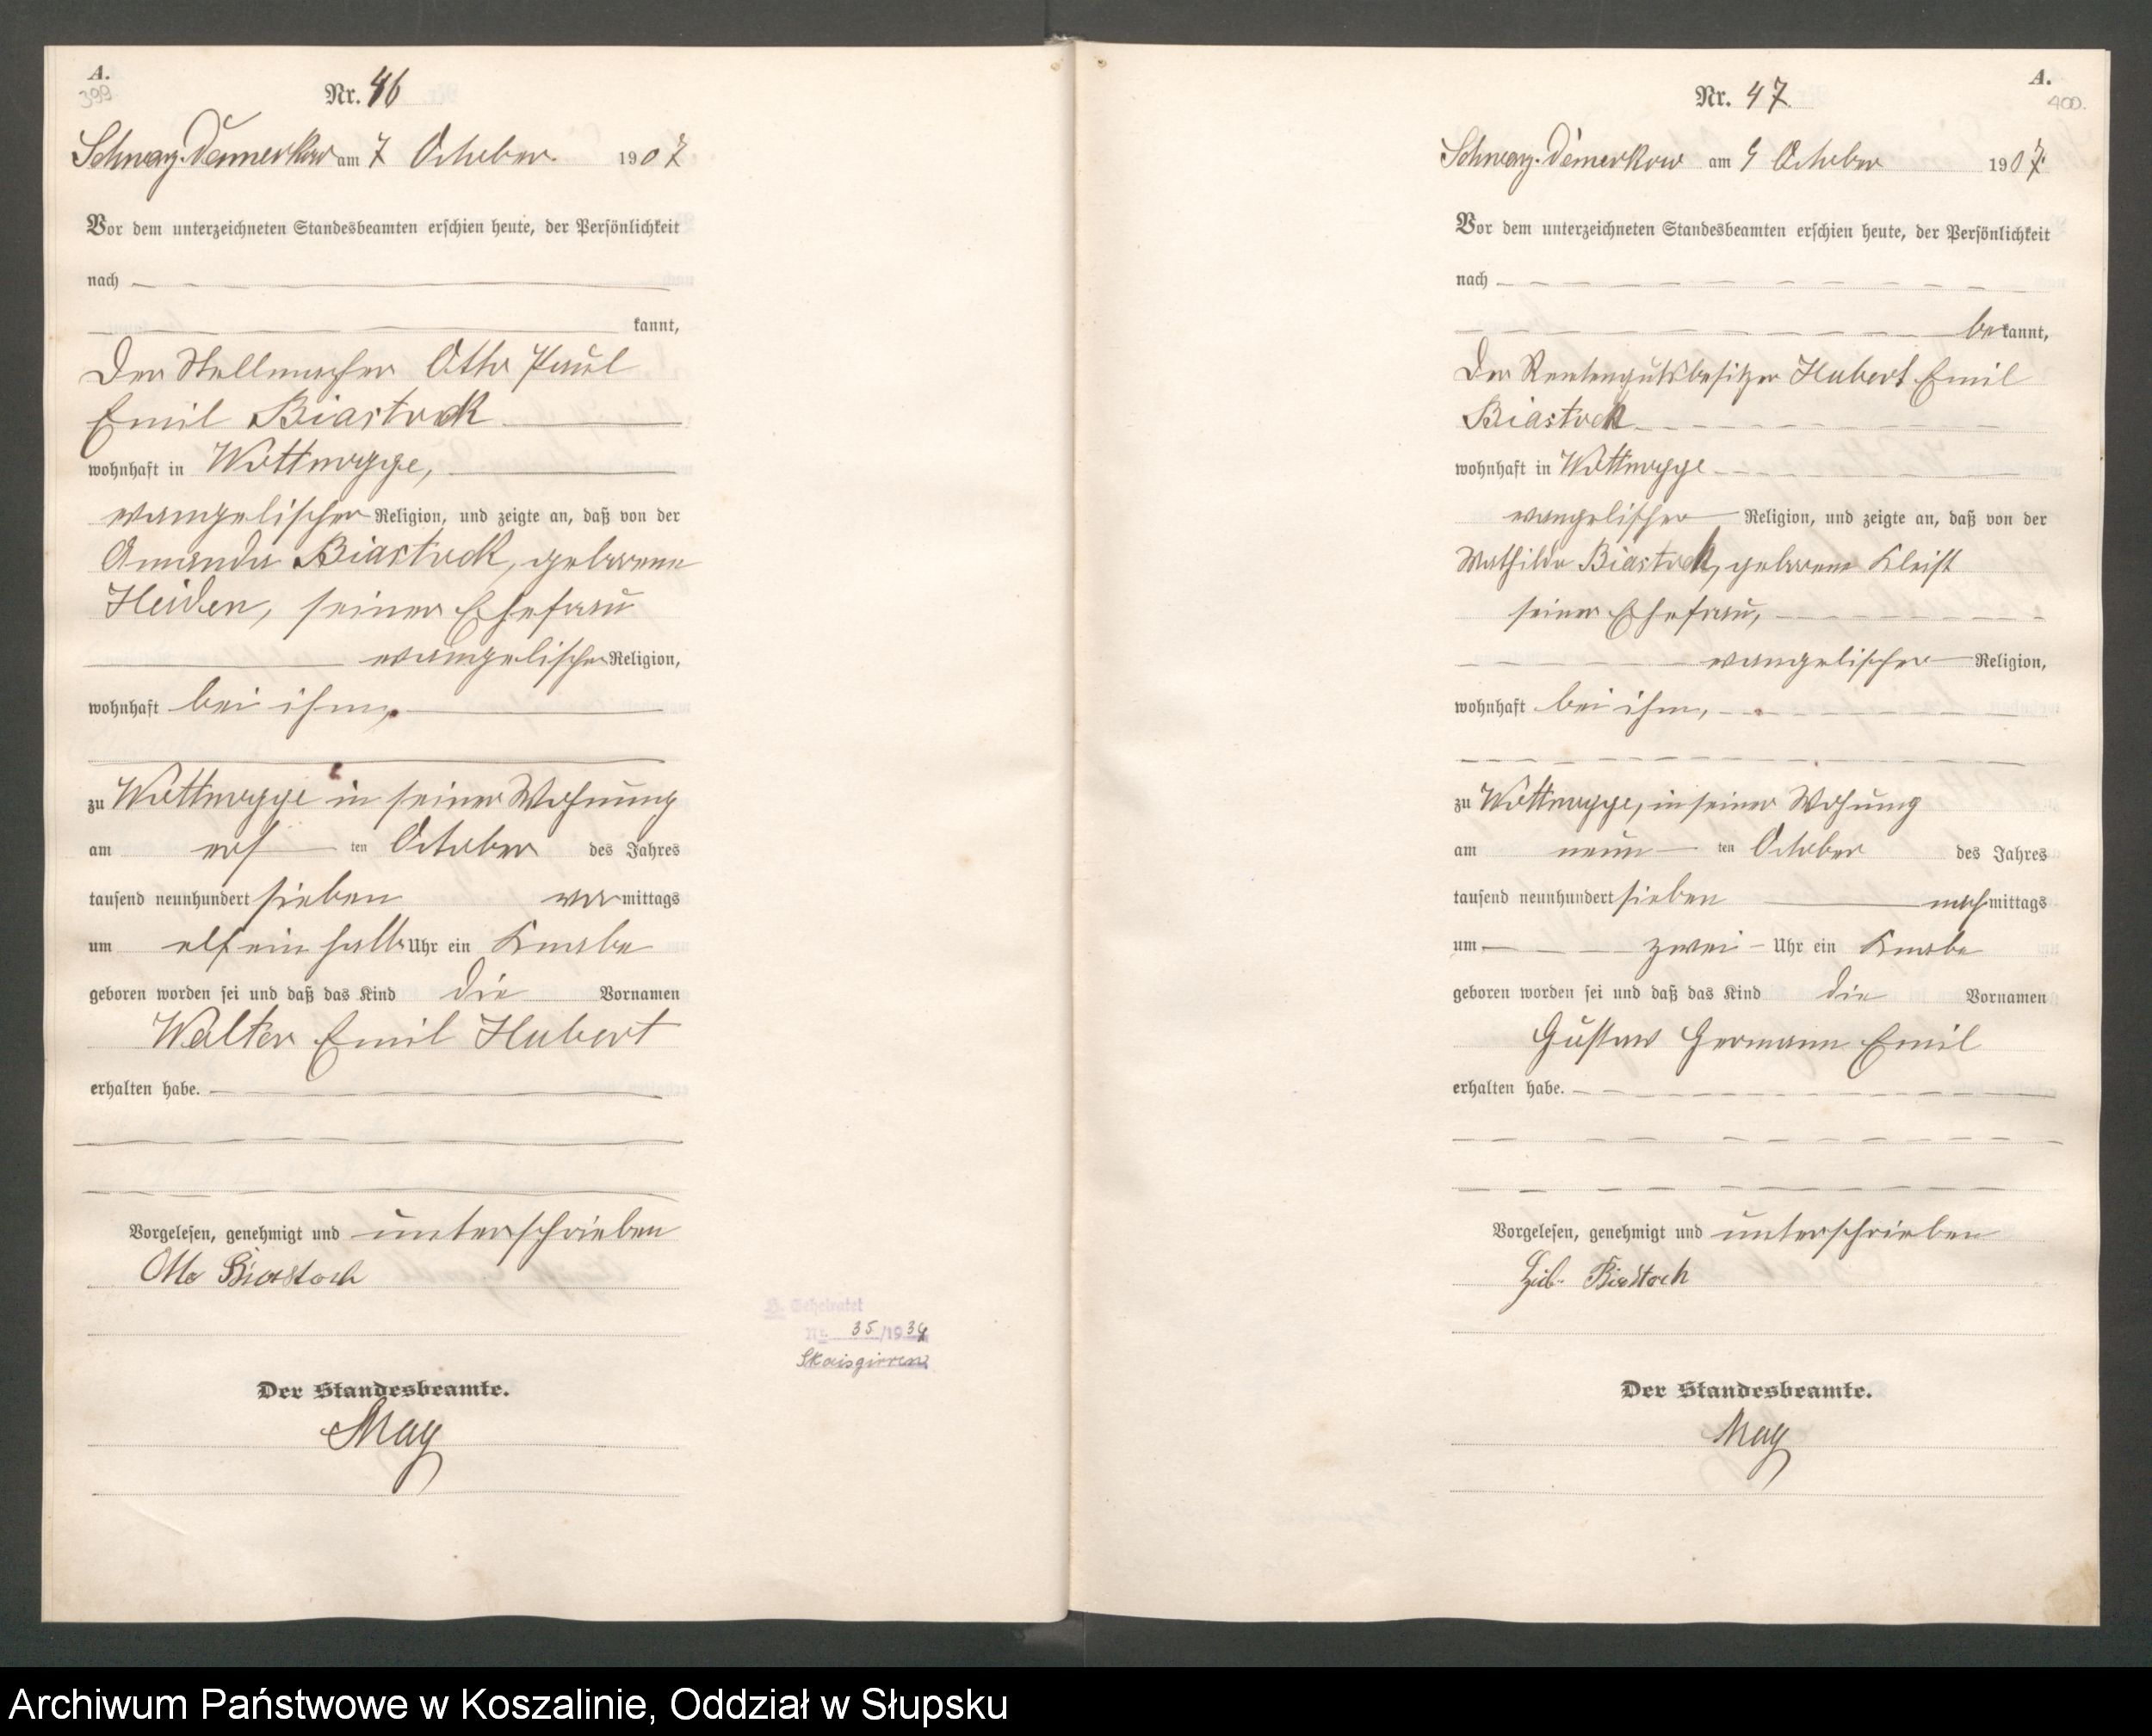 A.
399
Nr. 46
Schwarz-Damerkow am 7 October 1907
Vor dem unterzeichneten Standesbeamten erschien heute, der Persönlichkeit
nach
kannt,
Der Stellmacher Otto Paul
Emil Biastock
wohnhaft in Wottnogge,
evangelischer Religion, und zeigte an, daß von der
Amanda Biastock, geborene
Heiden, seiner Ehefrau
evangelischer Religion,
wohnhaft bei ihm,
zu Wottnogge in seiner Wohnung
am ten October des Jahres
tausend neunhundert sieben vormittags
um elf ein halb Uhr ein Knabe
geboren worden sei und daß das Kind die Vornamen
Walter Emil Hubert
erhalten habe.
Vorgelesen, genehmigt und unterschrieben
Otto Biastock
Der Standesbeamte.
May
H. Geheiratet
Nr. 35/1934
Skaisgirren
A.
400.
Nr. 47
Schwarz-Damerkow am 9 October 1907.
Vor dem unterzeichneten Standesbeamten erschien heute, der Persönlichkeit
nach
bekannt,
Der Rentengutsbesitzer Hubert Emil
Biastock
wohnhaft in Wottnogge
evangelischer Religion, und zeigte an, daß von der
Mathilde Biastock, geborene Kleist
seiner Ehefrau,
evangelischer Religion,
wohnhaft bei ihm,
zu Wottnogge, in seiner Wohnung
am neun ten October des Jahres
tausend neunhundert sieben nachmittags
um zwei Uhr ein Knabe
geboren worden sei und daß das Kind die Vornamen
Gustav Hermann Emil
erhalten habe.
Vorgelesen, genehmigt und unterschrieben
Hub. Biastock
Der Standesbeamte.
May
Archiwum Państwowe w Koszalinie, Oddział w Słupsku